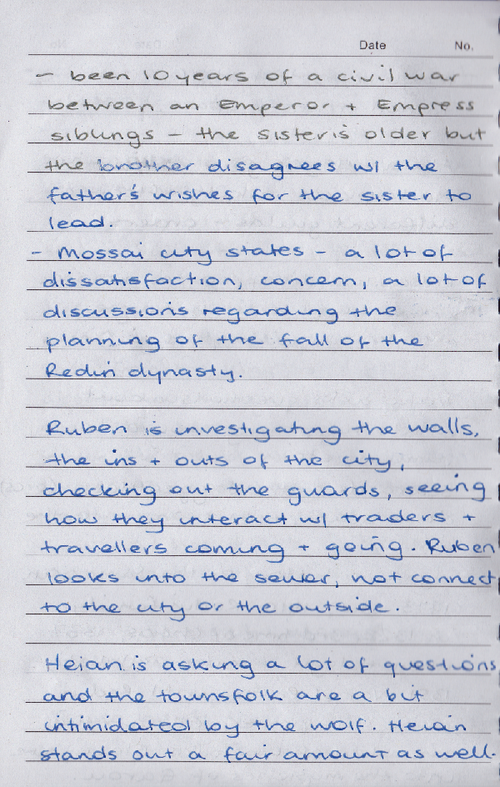 Date No.
- been 10 years of a civil war
between an Emperor + Empress
siblings - the sister is older but
the brother disagrees w/ the
father's wishes for the sister to
lead.
- Mossai city states - a lot of
dissatisfaction, concern, a lot of
discussions regarding the
planning of the fall of the
Redin dynasty.
Ruben is investigating the walls,
the ins + outs of the city,
checking out the guards, seeing
how they interact w/ traders +
travellers coming + going. Ruben
looks into the sewer, not connect
to the city or the outside.
Heian is asking a lot of questions
and the townsfolk are a bit
intimidated by the wolf. Heian
stands out a fair amount as well.